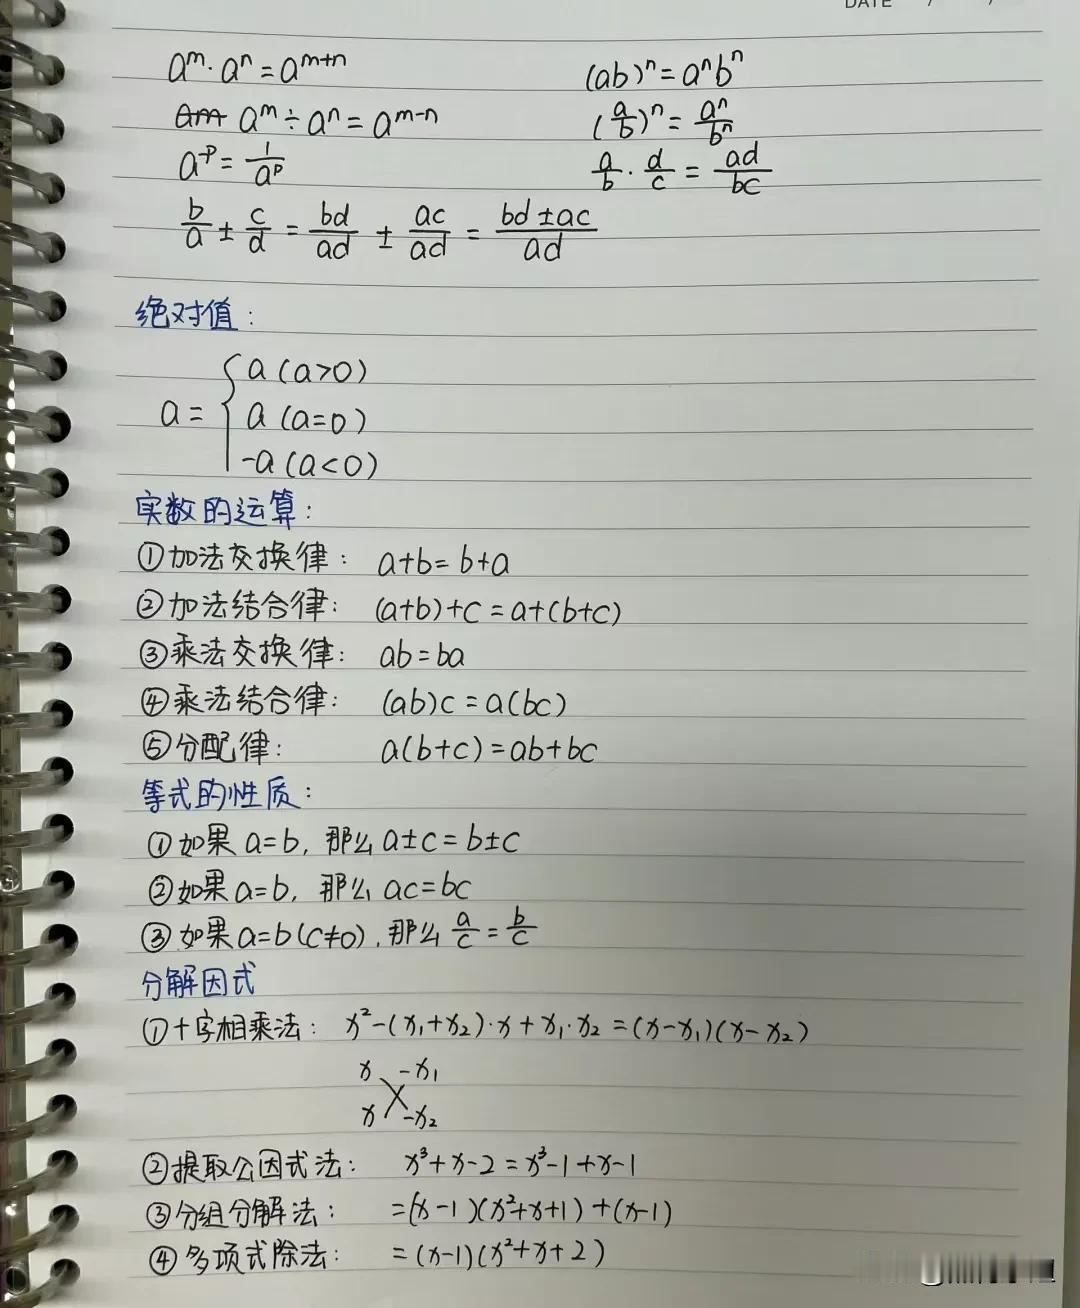 DATE / /
a^m·a^n=a^{m+n} (ab)^n=a^n b^n
am a^m÷a^n=a^{m-n} (a/b)^n=a^n/b^n
a^{-p}=1/a^p a/b·d/c=ad/bc
b/a±c/d=bd/ad±ac/ad=(bd±ac)/ad
绝对值:
a(a>0)
a={a(a=0)
-a(a<0)
实数的运算:
①加法交换律: a+b=b+a
②加法结合律: (a+b)+c=a+(b+c)
③乘法交换律: ab=ba
④乘法结合律: (ab)c=a(bc)
⑤分配律: a(b+c)=ab+bc
等式的性质:
①如果a=b,那么a±c=b±c
②如果a=b,那么ac=bc
③如果a=b(c≠0),那么a/c=b/c
分解因式
①十字相乘法: x²-(x₁+x₂)·x+x₁·x₂=(x-x₁)(x-x₂)
x -x₁
x -x₂
②提取公因式法: x³+x-2=x³-1+x-1
③分组分解法: =(x-1)(x²+x+1)+(x-1)
④多项式除法: =(x-1)(x²+x+2)